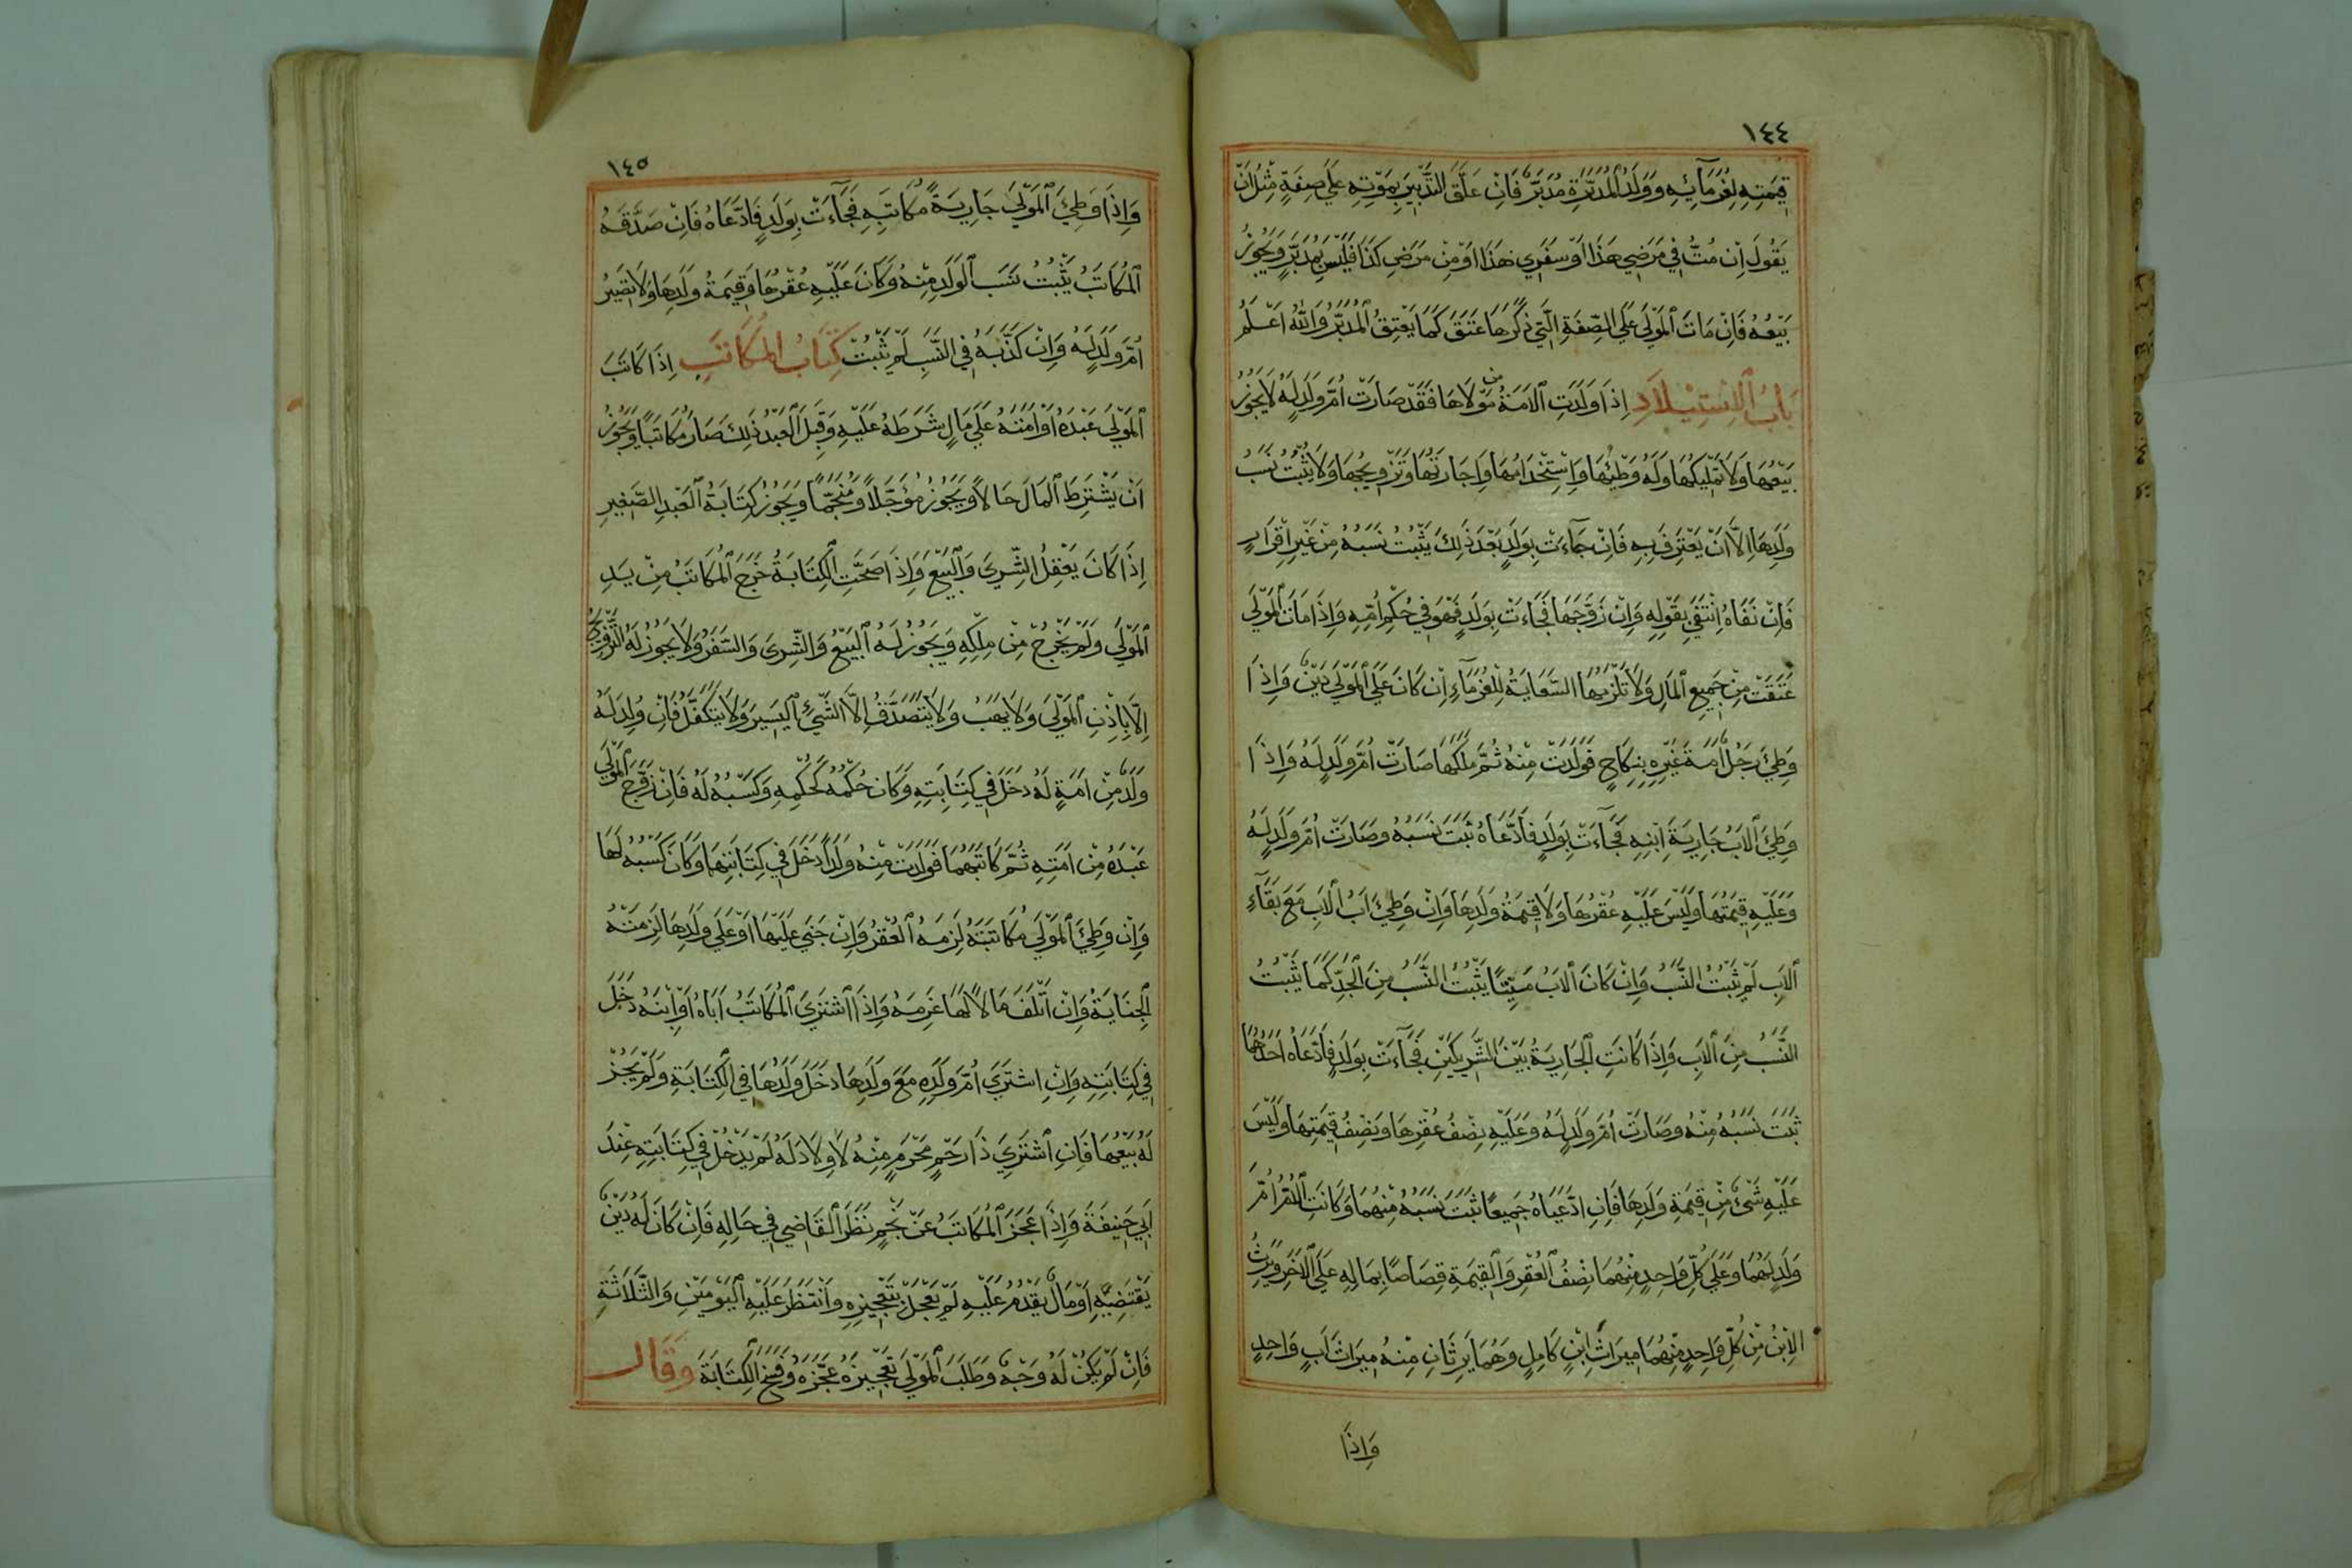 ١٤٤
قِيمَتِهِ لِغُرَمَآئِهِ وَوَلَدُ الْمُدَبَّرَةِ مُدَبَّرٌ فَاِنْ عَلَّقَ التَّدْبِيرَ بِمَوْتِهِ عَلٰي صِفَةٍ مِثْلُ اَنْ
يَقُولَ اِنْ مُتُّ فِي مَرَضِي هَذَا اَوْ سَفَرِي هَذَا اَوْ مِنْ مَرَضِ كَذَا فَلَيْسَ بِمُدَبَّرٍ وَيَجُوزُ
بَيْعُهُ فَاِنْ مَاتَ الْمَوْلَي عَلَي الصِّفَةِ الَّتِي ذَكَرَهَا عَتَقَ كَمَا يَعْتِقُ الْمُدَبَّرُ وَاللّٰهُ اَعْلَمُ
بَابُ الْاِسْتِيْلَادِ اِذَا وَلَدَتِ الْاَمَةُ مِنْ مَوْلَاهَا فَقَدْ صَارَتْ اُمَّ وَلَدٍ لَهُ لَا يَجُوزُ
بَيْعُهَا وَلَا تَمْلِيكُهَا وَلَهُ وَطْئُهَا وَاِسْتِخْدَامُهَا وَاِجَارَتُهَا وَتَزْوِيجُهَا وَلَا يَثْبُتُ نَسَبُ
وَلَدِهَا اِلَّا اَنْ يَعْتَرِفَ بِهِ فَاِنْ جَآءَتْ بِوَلَدٍ بَعْدَ ذٰلِكَ يَثْبُتُ نَسَبُهُ مِنْ غَيْرِ اِقْرَارٍ
فَاِنْ نَفَاهُ اِنْتَفَي بِقَوْلِهِ وَاِنْ زَوَّجَهَا فَجَاءَتْ بِوَلَدٍ فَهُوَ فِي حُكْمِ اُمِّهِ وَاِذَا مَاتَ الْمَوْلَي
عَتَقَتْ مِنْ جَمِيعِ الْمَالِ وَلَا تَلْزَمُهَا السَّعَايَةُ لِلْغُرَمَآءِ اِنْ كَانَ عَلَي الْمَوْلَي دَيْنٌ وَاِذَا
وَطِئَ رَجُلٌ اَمَةَ غَيْرِهِ بِنِكَاحٍ فَوَلَدَتْ مِنْهُ ثُمَّ مَلَكَهَا صَارَتْ اُمَّ وَلَدٍ لَهُ وَاِذَا
وَطِئَ الْاَبُ جَارِيَةَ اِبْنِهِ فَجَآءَتْ بِوَلَدٍ فَادَّعَاهُ ثَبَتَ نَسَبُهُ وَصَارَتْ اُمَّ وَلَدٍ لَهُ
وَعَلَيْهِ قِيمَتُهَا وَلَيْسَ عَلَيْهِ عُقْرُهَا وَلَا قِيمَةُ وَلَدِهَا وَاِنْ وَطِئَ اَبُ الْاَبِ مَعَ بَقَآءِ
الْاَبِ لَمْ يَثْبُتُ النَّسَبُ وَاِنْ كَانَ الْاَبُ مَيِّتًا يَثْبُتُ النَّسَبُ مِنَ الْجَدِّ كَمَا يَثْبُتُ
النَّسَبُ مِنَ الْاَبِ وَاِذَا كَانَتِ الْجَارِيَةُ بَيْنَ الشَّرِيكَيْنِ فَجَآءَتْ بِوَلَدٍ فَادَّعَاهُ اَحَدُهُمَا
ثَبَتَ نَسَبُهُ مِنْهُ وَصَارَتْ اُمَّ وَلَدٍ لَهُ وَعَلَيْهِ نِصْفُ عُقْرِهَا وَنِصْفُ قِيمَتِهَا وَلَيْسَ
عَلَيْهِ شَيْءٌ مِنْ قِيمَةِ وَلَدِهَا فَاِنِ ادَّعَيَاهُ جَمِيعًا ثَبَتَ نَسَبُهُ مِنْهُمَا وَكَانَتِ الْاُمُّ اُمَّ
وَلَدٍ لَهُمَا وَعَلَي كُلِّ وَاحِدٍ مِنْهُمَا نِصْفُ الْعُقْرِ وَالْقِيمَةِ قِصَاصًا بِمَا لِهِ عَلَي الْاٰخَرِ وَيَرِثُ
الْاِبْنُ مِنْ كُلِّ وَاحِدٍ مِنْهُمَا مِيرَاثَ ابْنٍ كَامِلٍ وَهُمَا يَرِثَانِ مِنْهُ مِيرَاثَ اَبٍ وَاحِدٍ
وَاِذَا
١٤٥
وَاِذَا وَطِئَ الْمَوْلَي جَارِيَةً مُكَاتَبِهِ فَجَآءَتْ بِوَلَدٍ فَادَّعَاهُ فَاِنْ صَدَّقَهُ
الْمُكَاتَبُ يَثْبُتُ نَسَبُ الْوَلَدِ مِنْهُ وَكَانَ عَلَيْهِ عُقْرُهَا وَقِيمَةُ وَلَدِهَا وَلَا تَصِيرُ
اُمَّ وَلَدٍ لَهُ وَاِنْ كَذَّبَهُ فِي النَّسَبِ لَمْ يَثْبُتْ كِتَابُ الْمُكَاتَبِ اِذَا كَاتَبَ
الْمَوْلَي عَبْدَهُ اَوْ اَمَتَهُ عَلَي مَالٍ شَرَطَهُ عَلَيْهِ وَقَبِلَ الْعَبْدُ ذٰلِكَ صَارَ مُكَاتَبًا وَيَجُوزُ
اَنْ يَشْتَرِطَ الْمَالَ حَالًا وَيَجُوزُ مُؤَجَّلًا وَمُنَجَّمًا وَيَجُوزُ كِتَابَةُ الْعَبْدِ الصَّغِيرِ
اِذَا كَانَ يَعْقِلُ الشِّرَي وَالْبَيْعَ وَاِذَا صَحَّتِ الْكِتَابَةُ خَرَجَ الْمُكَاتَبُ مِنْ يَدِ
الْمَوْلَي وَلَمْ يَخْرُجْ مِنْ مِلْكِهِ وَيَجُوزُ لَهُ الْبَيْعُ وَالشِّرَي وَالسَّفَرُ وَلَا يَجُوزُ لَهُ التَّزْوِيجُ
اِلَّا بِاِذْنِ الْمَوْلَي وَلَا يَهَبُ وَلَا يَتَصَدَّقُ اِلَّا الشَّيْءَ الْيَسِيرَ وَلَا يَتَكَفَّلُ فَاِنْ وُلِدَ لَهُ
وَلَدٌ مِنْ اَمَةٍ لَهُ دَخَلَ فِي كِتَابَتِهِ وَكَانَ حُكْمُهُ كَحُكْمِهِ وَكَسْبُهُ لَهُ فَاِنْ زَوَّجَ الْمَوْلَي
عَبْدَهُ مِنْ اَمَتِهِ ثُمَّ كَاتَبَهُمَا فَوَلَدَتْ مِنْهُ وَلَدًا دَخَلَ فِي كِتَابَتِهَا وَكَانَ كَسْبُهُ لَهَا
وَاِنْ وَطِئَ الْمَوْلَي مُكَاتَبَتَهُ لَزِمَهُ الْعُقْرُ وَاِنْ جَنَي عَلَيْهَا اَوْ عَلَي وَلَدِهَا لَزِمَتْهُ
الْجِنَايَةُ وَاِنْ اَتْلَفَ مَالًا لَهَا غَرِمَهُ وَاِذَا اشْتَرَي الْمُكَاتَبُ اَبَاهُ اَوْ اِبْنَهُ دَخَلَ
فِي كِتَابَتِهِ وَاِنِ اشْتَرَي اُمَّ وَلَدِهِ مَعَ وَلَدِهَا دَخَلَ وَلَدُهَا فِي الْكِتَابَةِ وَلَمْ يَجُزْ
لَهُ بَيْعُهَا فَاِنِ اشْتَرَي ذَا رَحِمٍ مَحْرَمٍ مِنْهُ لَا وِلَادَ لَهُ لَمْ يَدْخُلْ فِي كِتَابَتِهِ عِنْدَ
اَبِي حَنِيفَةَ وَاِذَا عَجَزَ الْمُكَاتَبُ عَنْ نَجْمٍ نَظَرَ الْقَاضِي فِي حَالِهِ فَاِنْ كَانَ لَهُ دَيْنٌ
يَقْتَضِيهِ اَوْ مَالٌ يَقْدُمُ عَلَيْهِ لَمْ يَعْجَلْ بِتَعْجِيزِهِ وَانْتَظَرَ عَلَيْهِ الْيَوْمَيْنِ وَالثَّلَاثَةِ
فَاِنْ لَمْ يَكُنْ لَهُ وَجْهٌ وَطَلَبَ الْمَوْلَي تَعْجِيزَهُ عَجَّزَهُ وَفَسَخَ الْكِتَابَةَ وَقَالَ